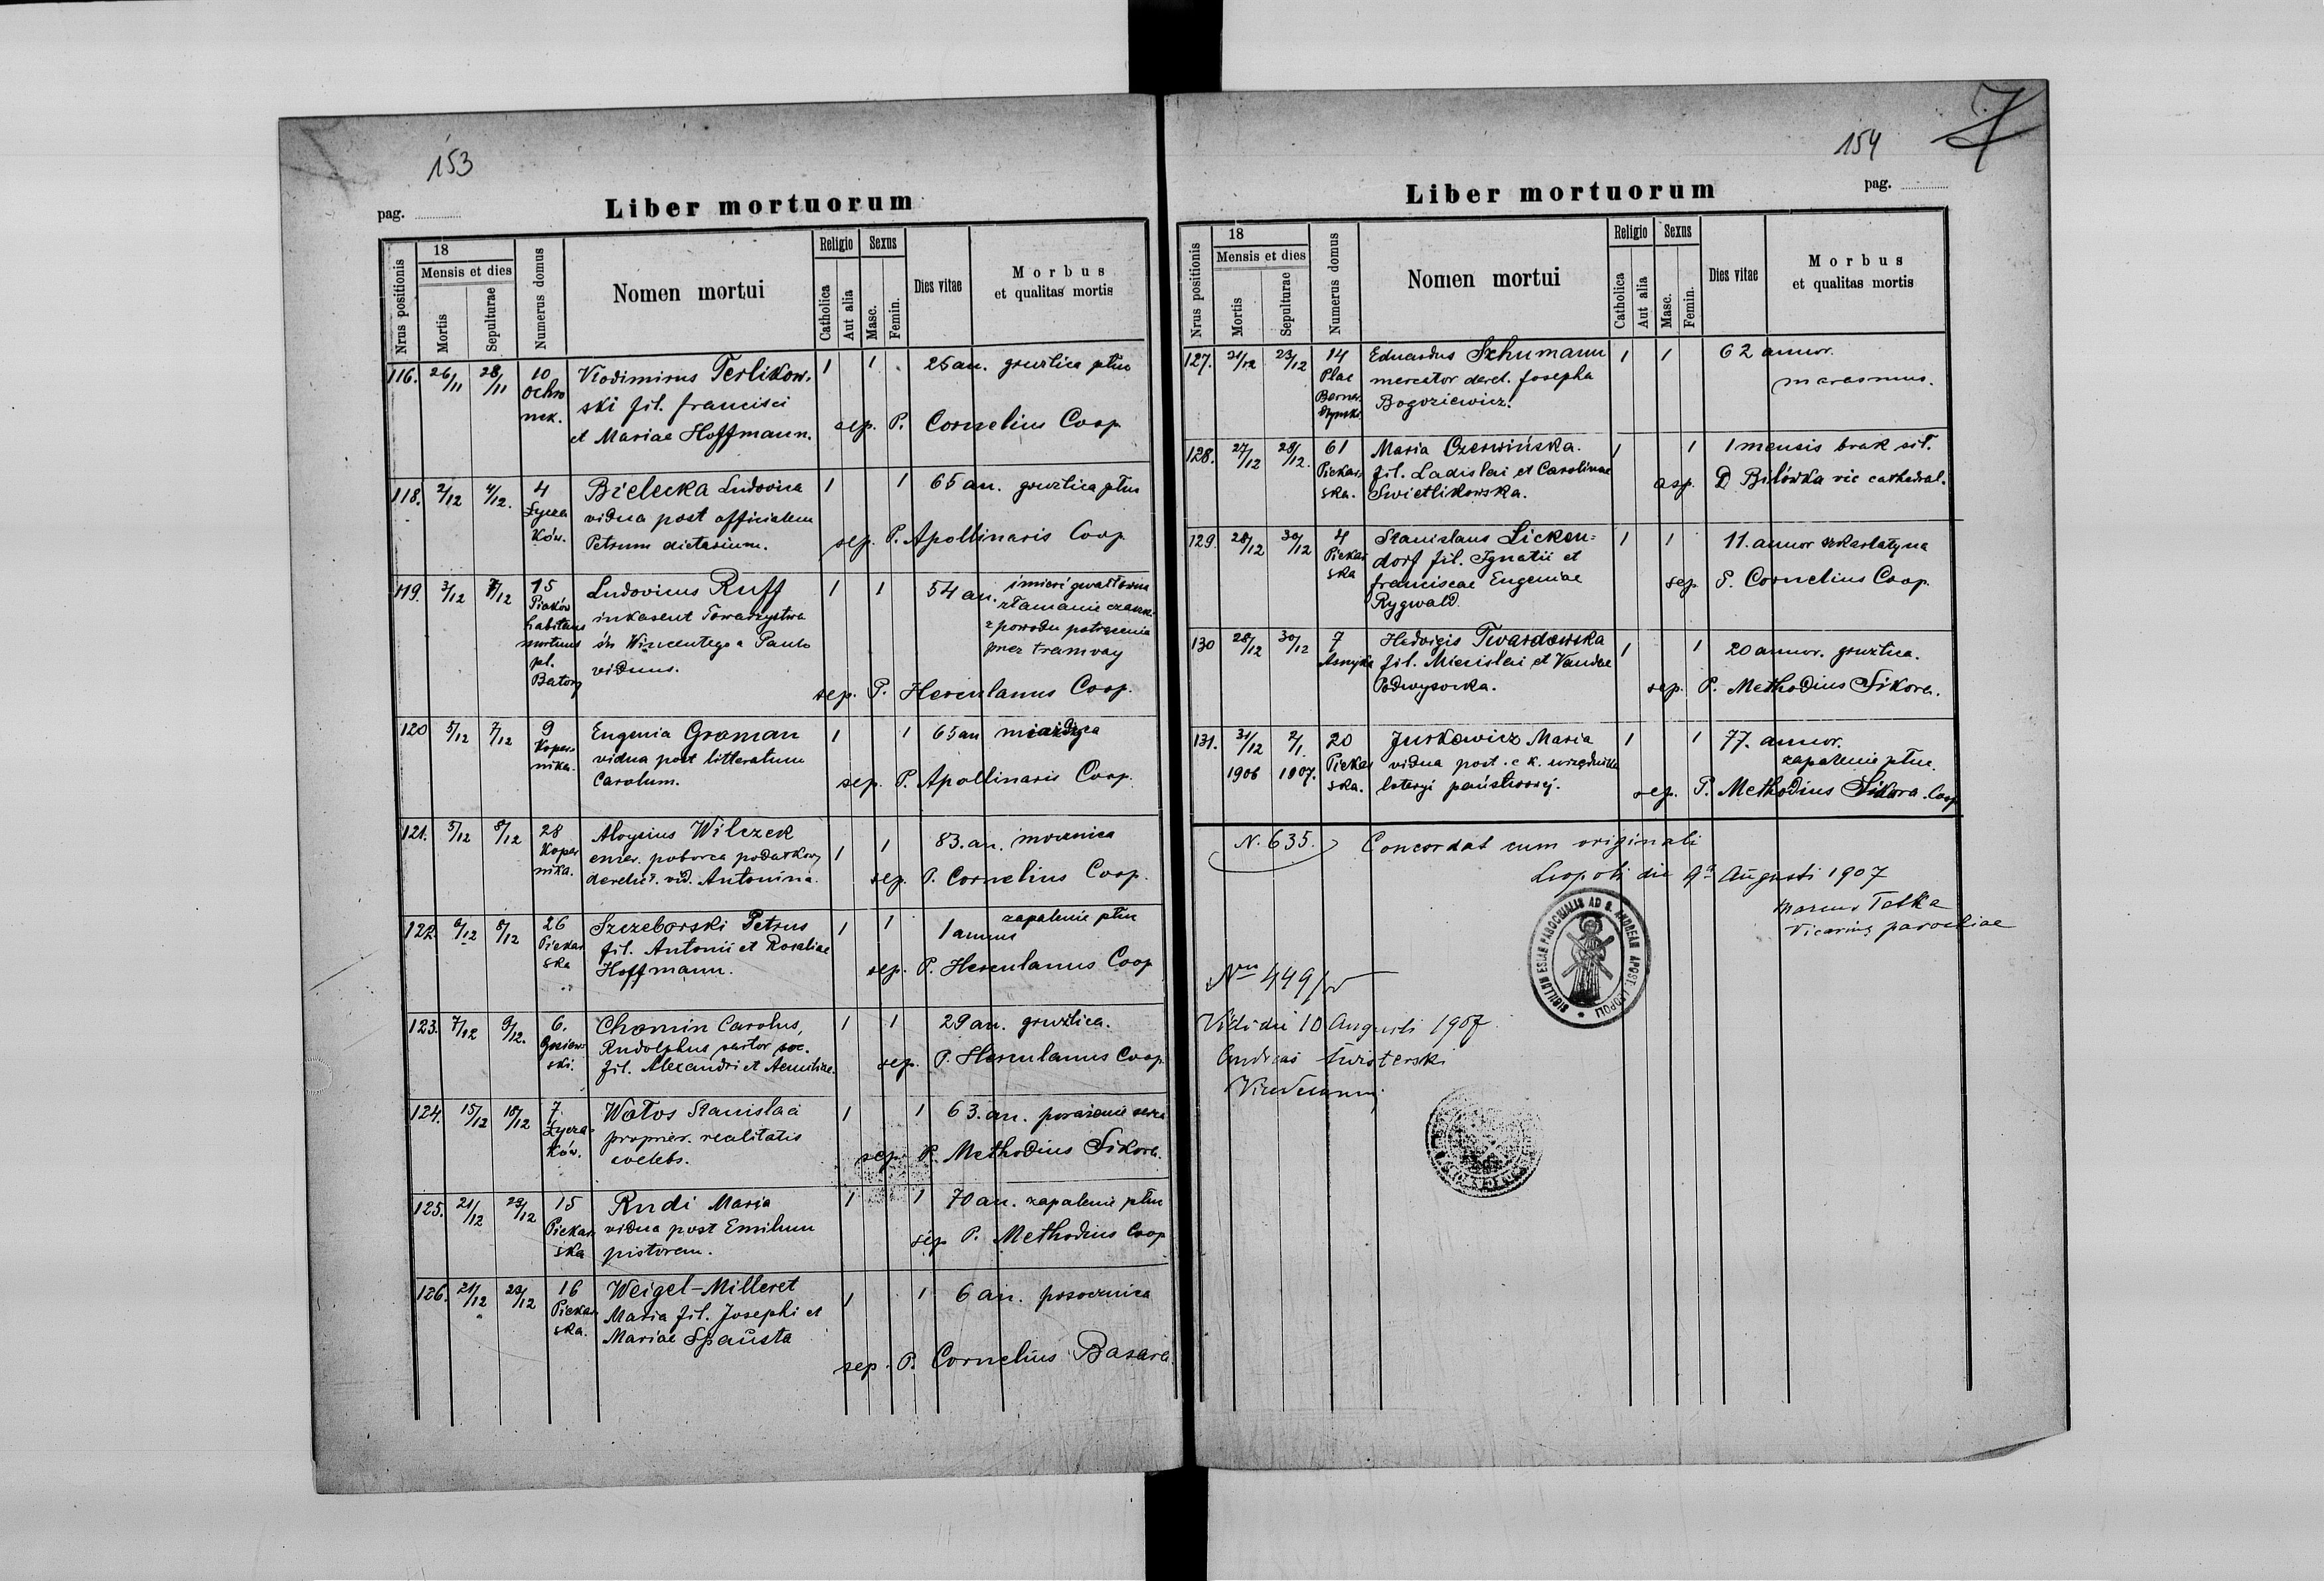 153
pag.
Liber mortuorum
Nrus positionis
18
Mensis et dies
Mortis
Sepulturae
Numerus domus
Nomen mortui
Religio
Catholica
Aut alia
Sexus
Masc.
Femin.
Dies vitae
Morbus
et qualitas mortis
116. 26/11 28/11 10 Vlodimirus Terlikow- 1 1 25 an. gruźlica płuc
Ochro ski fil. Francisci
nek. et Mariae Hoffmann. sep. P. Cornelius Coop
118. 2/12 4/12. 4 Bielecka Ludovica 1 1 65 an. gruźlica płuc
Łycza vidua post officialem
ków. Petrum dietarium. sep. P. Apollinaris Coop
119. 3/12 7/12 15 Ludovicus Ruff 1 1 54 an. śmierć gwałtowna
Piaków inkasent Towarzystwa złamanie czaszki
habitans św Wincentego a Paulo z powodu potrącenia
mortuus viduus. przez tramvay
pl.
Batory
sep. P. Herculanus Coop.
120 5/12 7/12 9 Eugenia Groman 1 1 65 an miażdżyca
Koper- vidua post litteratum
nika. Carolum. sep. P. Apollinaris Coop.
121. 5/12 8/12 28 Aloysius Wilczek 1 1 83. an. mocznica
Koper emer. poborca podatkowy
nika. derelict. vid. Antonina. sep. P. Cornelius Coop.
122. 6/12 8/12 26 Szczeborski Petrus 1 1 1 annus zapalenie płuc
Piekar fil. Antonii et Rosaliae
ska Hoffmann. sep. P. Herculanus Coop
123. 7/12 9/12. 6. Chomin Carolus, 1 1 29 an. gruźlica.
Rudolphus sartor soc.
ski. fil. Alexandri et Aemiliae. sep. P. Herculanus Coop.
124. 15/12 18/12 7 Wołos Stanislaa 1 1 63. an. porażenie serca
Łycza- proprier. realitatis
ków. coelebs. sep. P. Methodius Sikora.
125. 21/12 23/12 15 Rudi Maria 1 1 70 an. zapalenie płuc
Piekar vidua post Emilium
ska pistorem. sep P. Methodius Coop
126. 21/12 23/12 16 Weigel-Milleret 1 1 6 an. posocznica
Piekar Maria fil. Josephi et
ska. Mariae Spausta
sep. P. Cornelius Basara.
154
pag.
Liber mortuorum
Nrus positionis
18
Mensis et dies
Mortis
Sepulturae
Numerus domus
Nomen mortui
Religio
Catholica
Aut alia
Sexus
Masc.
Femin.
Dies vitae
Morbus
et qualitas mortis
127. 21/12 23/12 14 Eduardus Schumann 1 1 62 annor.
Plac mercator derel. Josepha marasmus.
Bernar Bogoziewicz.
dyński
128. 27/12 28/12. 61 Maria Czerwińska. 1 1 1 mensis brak sił.
Piekar fil. Ladislai et Carolinae
ska. Swietlikowska. asp. D Bilówka vic cathedral.
129. 28/12 30/12 4 Stanislaus Licken= 1 1 11. annor szkarlatyna
Piekar dorf fil. Ignatii et
ska Franciscae Eugeniae sep P. Cornelius Coop.
Rygwald.
130 28/12 30/12 7 Hedvigis Twardowska 1 1 20 annor. gruźlica.
Asnyka fil. Miecislai et Vandae
Podwysocka. sep. P. Methodius Sikora.
131. 31/12 2/1. 20 Jurkowicz Maria 1 1 77. annor.
1906 1907. Piekar vidua post. c k. urzędniku zapalenie płuc.
ska. loteryi państwowej. sep. P. Methodius Sikora. Coop
N. 635. Concordat cum originali
Leopoli die 9a Augusti 1907
Vicarius parochiae
SIGILLUM ESIAE PAROCHIALIS AD S. ANDREAM APOST. LEOPOLI
Nru 449/
Vidi die 10 Augusti 1907